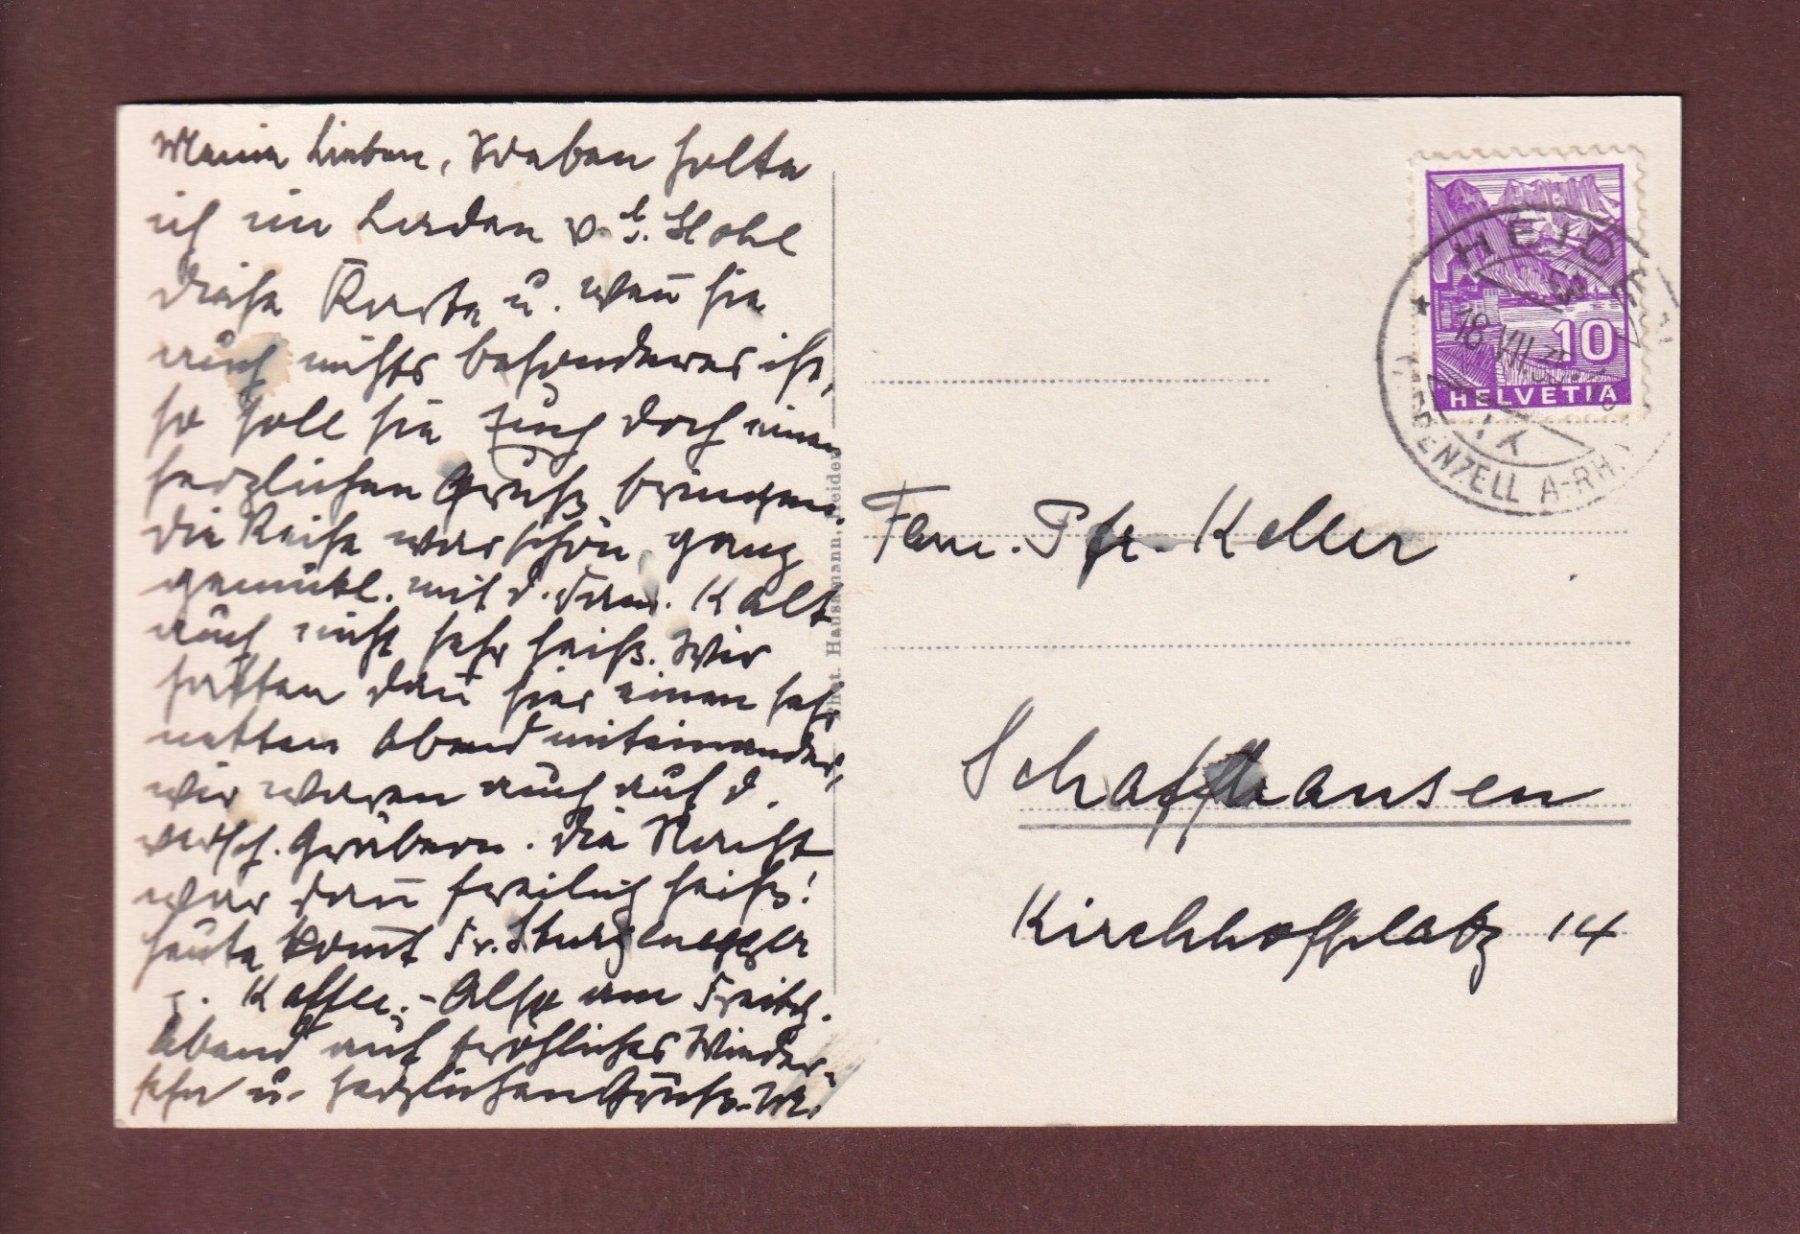 Meine Lieben, Soeben holte
ich im Laden v. Hohl
diese Karte u. wen̄ sie
auch nichts besonderes ist,
so soll sie Euch doch einen
herzlichen Gruß bringen.
Die Reise war schön, ganz
gemütl. mit d. Fam. Kält
auch nicht sehr heiß. Wir
hatten dan̄ hier einen sehr
netten Abend miteinander,
wir waren auch auf d.
versch. Gräbern. Die Nacht
war dan̄ freilich heiß!
Heute kom̄t Fr. Sturzenegger
z. Kaffee. - Also am Freitg.
Abend auf fröhliches Wieder-
sehn u. herzlichen Gruß. M.
Phot. Hausmann, Heiden
HEIDEN
18.VII.
IX
APPENZELL A-RH.
10
HELVETIA
Fam. Pfr. Keller
Schaffhausen
Kirchhofplatz 14